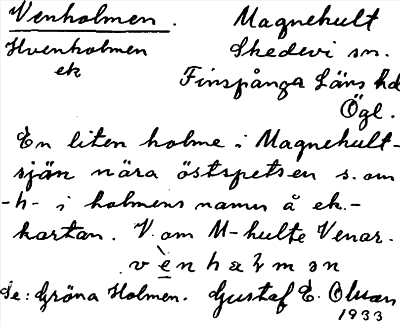 Venholmen. Magnehult
Hvenholmen Skedevi sn.
ek Finspånga Läns hd
Ögl.
En liten holme i Magnehult-
sjön nära östspetsen s. om
-h- i holmens namn å ek.-
kartan. V. om M-hulte Venar.
Se: Gröna Holmen. Gustaf E. Olsson
1933